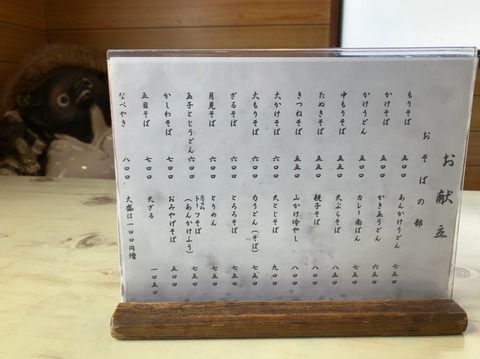 お献立
おそばの部
もりそば 五〇〇
かけそば 五〇〇
かけうどん 五〇〇
中もりそば 五五〇
たぬきそば 五五〇
きつねそば 五五〇
大かけそば 六〇〇
大もりそば 六〇〇
ざるそば 六〇〇
月見そば 六〇〇
玉子とじうどん 六〇〇
かしわそば 七〇〇
五目そば 七〇〇
なべやき 八〇〇
あんかけうどん 七五〇
かき玉うどん 六五〇
カレー南ばん 七五〇
天ぷらそば 八五〇
親子そば 八〇〇
山かけ冷やし 八〇〇
天とじそば 九〇〇
力うどん(そば) 七五〇
とろろそば 七五〇
とりめん 七五〇
トーフそば
(あんかけふう) 七五〇
おみやげそば 五〇〇
天ざる 一〇五〇
大盛は一〇〇円増